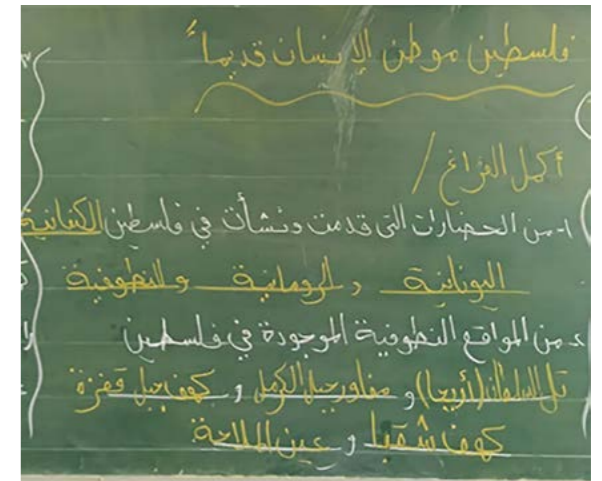 فلسطين موطن الإنسان قديماً
أكمل الفراغ /
١- من الحضارات التي قدمت ونشأت في فلسطين الكنعانية
اليونانية و الرومانية والنطوفية
٢- من المواقع النطوفية الموجودة في فلسطين
تل السلطان (أريحا) و مغاور جبل الكرمل و كهف جبل قفزة
كهف شقبا و عين الملاحة